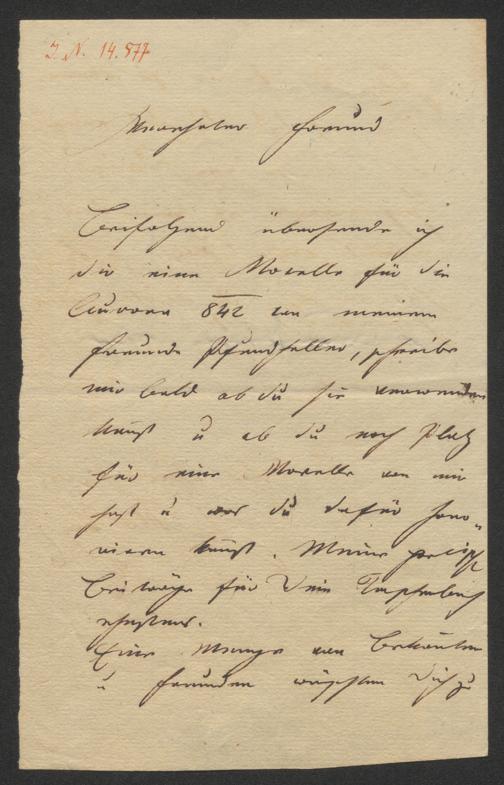 I. N. 14.877
Verehrter Freund
Beifolgend übersende ich
dir eine Novelle für die
Aurora 842 von meinem
Freunde Pfundheller, schreibe
mir bald ob du sie verwenden
kannst u ob du noch Platz
für eine Novelle von mir
hast u was du dafür hono=
riren kannst. Meine
Beiträge für Dein Taschenbuch
ehestens.
Eine Menge von Bekannten
u Freunden wünschten Dich zu